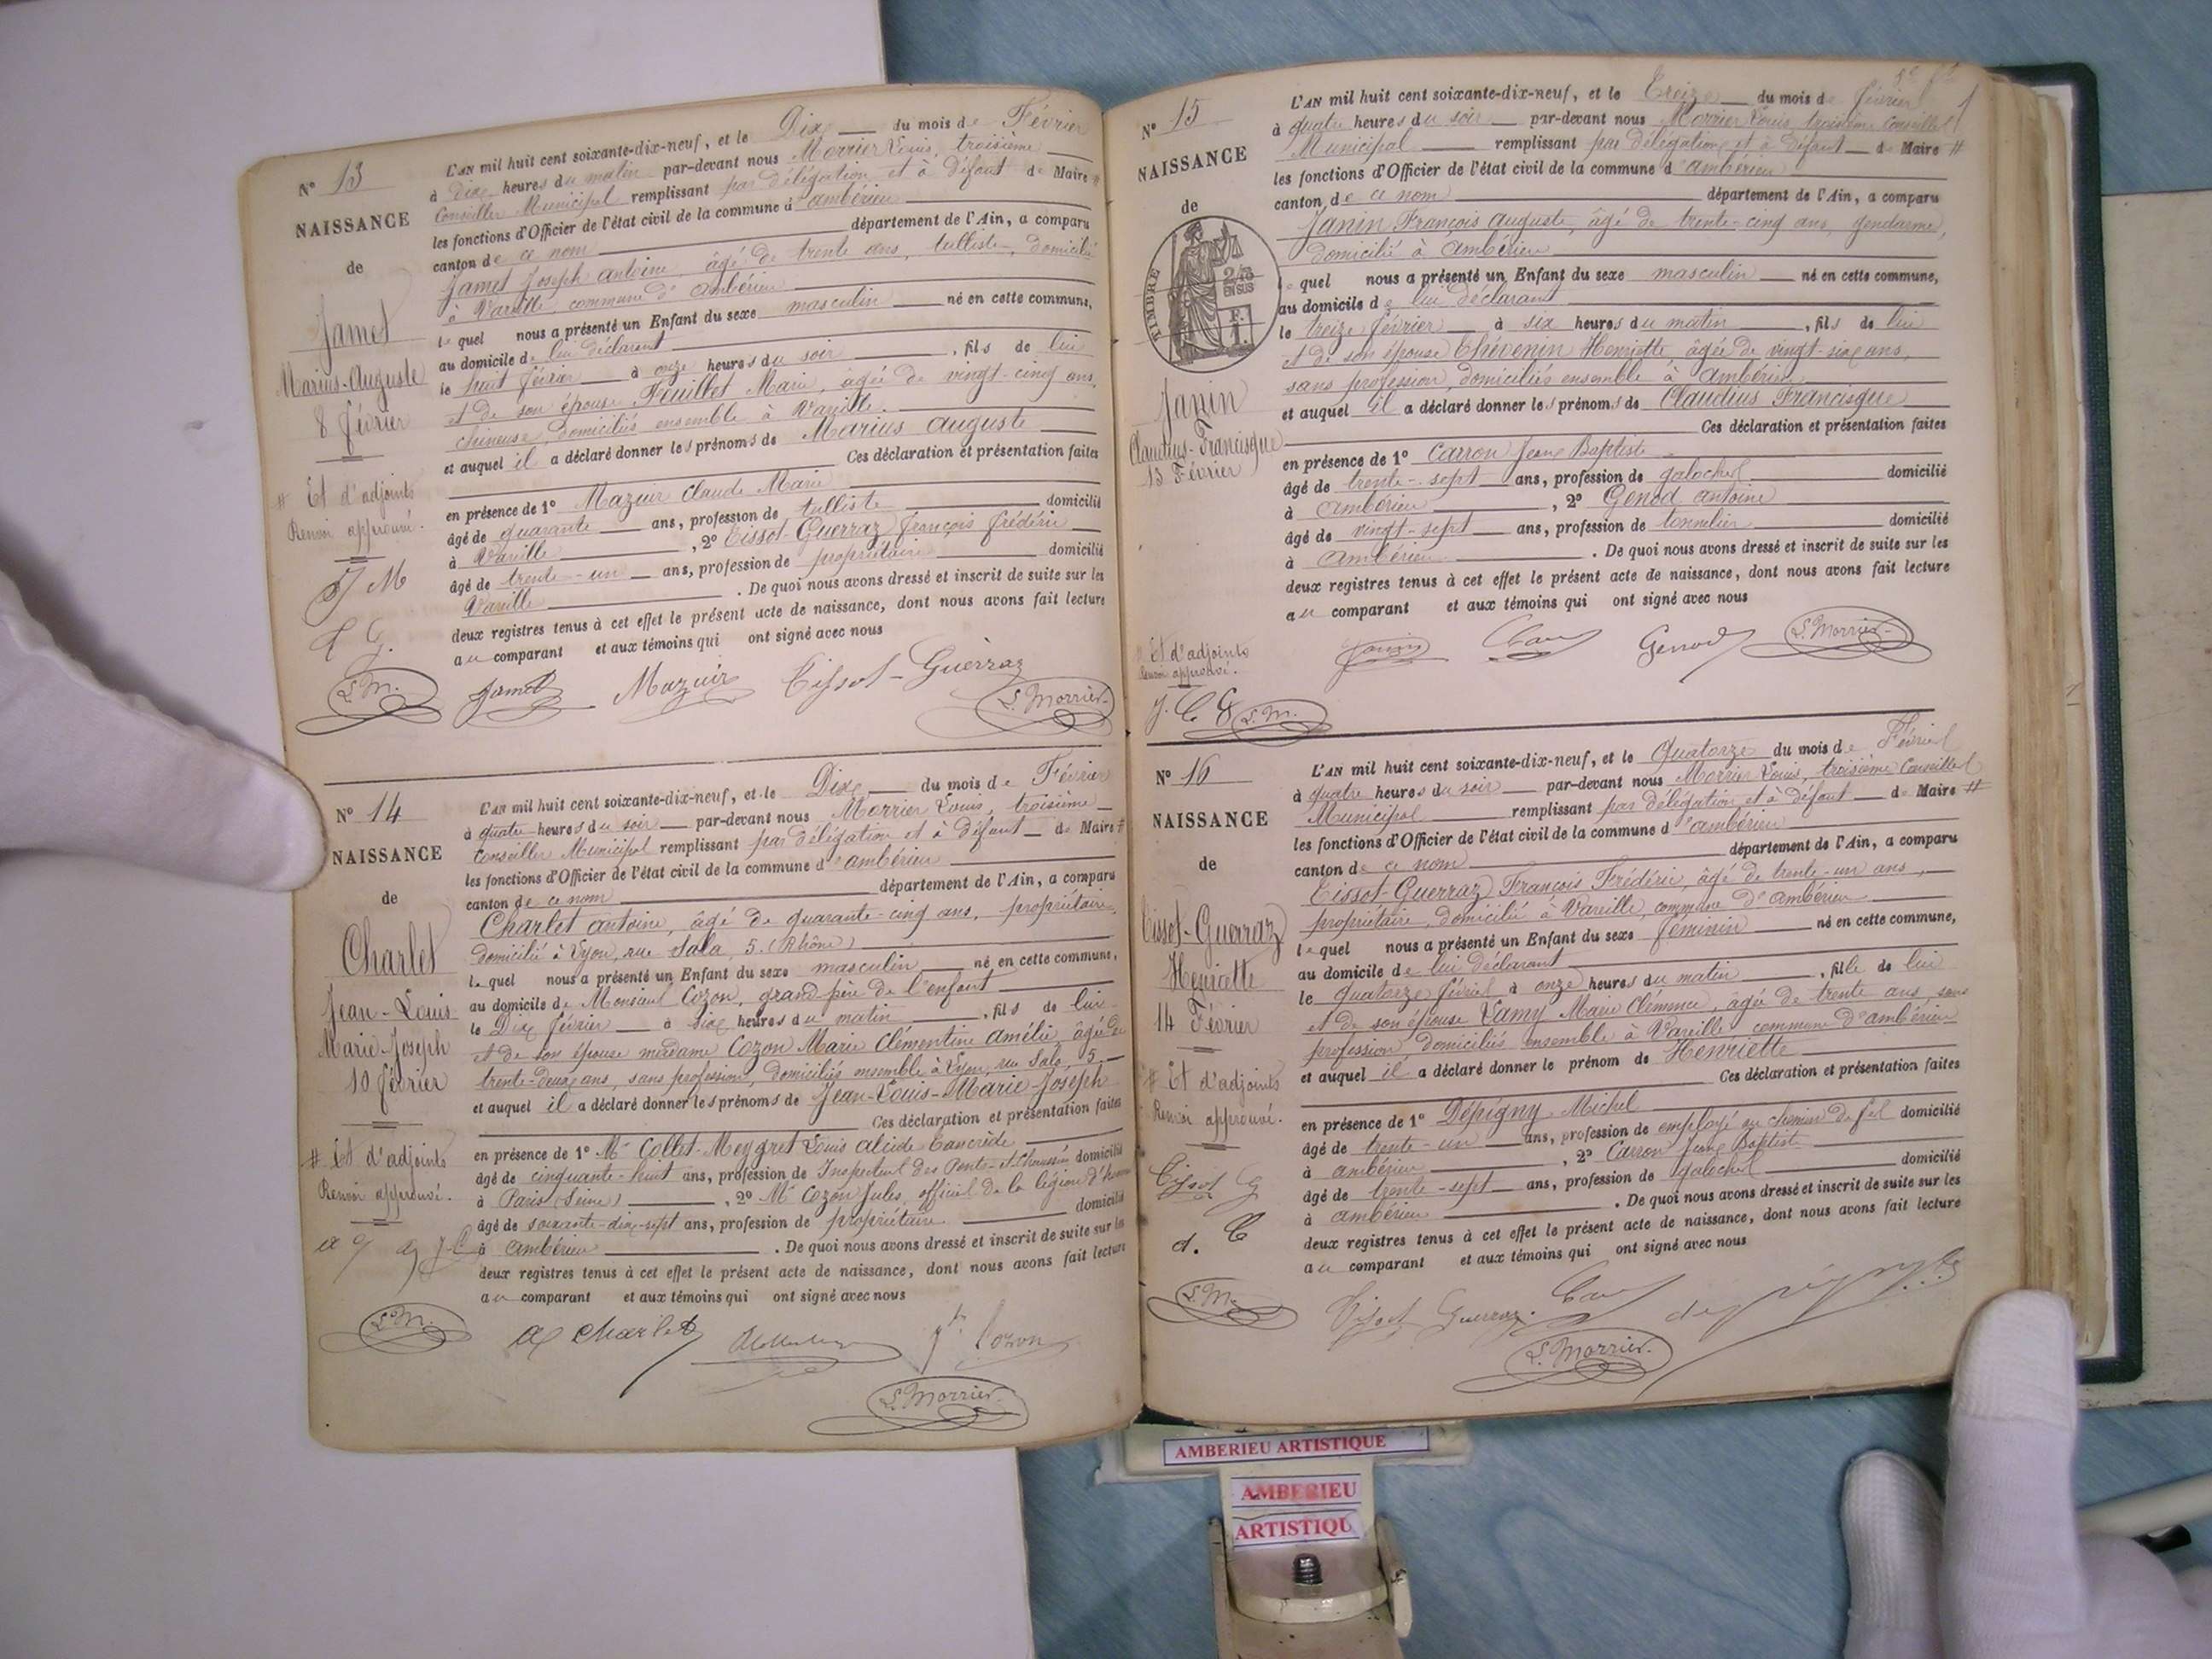 N° 13
NAISSANCE
de
Jamet
Marius-Auguste
8 février
# Et d'adjoints
Renvoi approuvé.
J M
T G.
L. M.
L'AN mil huit cent soixante-dix-neuf, et le Dix du mois de Février
à Dix heures du matin par-devant nous Morrier Louis, troisième
Conseiller Municipal remplissant par délégation et à défaut de Maire #
les fonctions d'Officier de l'état civil de la commune d'ambérieu
canton de ce nom département de l'Ain, a comparu
Jamet Joseph antoine, âgé de trente ans, tulliste, domicilié
à Vareille, commune d'ambérieu
lequel nous a présenté un Enfant du sexe masculin né en cette commune,
au domicile de lui déclarant
le huit février à onze heures du soir, fils de lui
et de son épouse Feuillet Marie, âgée de vingt-cinq ans,
chineuse, domiciliés ensemble à Vareille.
et auquel il a déclaré donner les prénoms de Marius auguste
Ces déclaration et présentation faites
en présence de 1° Mazuir Claude Marie
âgé de quarante ans, profession de tulliste domicilié
à Vareille, 2° Tissot-Guerraz françois frédéric
âgé de trente-un ans, profession de propriétaire domicilié
Vareille. De quoi nous avons dressé et inscrit de suite sur les
deux registres tenus à cet effet le présent acte de naissance, dont nous avons fait lecture
au comparant et aux témoins qui ont signé avec nous
Jamet Mazuir Tissot-Guerraz
L. Morrier.
N° 14
NAISSANCE
de
Charlet
Jean-Louis
Marie-Joseph
10 février
# Et d'adjoints
Renvoi approuvé.
L. M.
L'AN mil huit cent soixante-dix-neuf, et le Dix du mois de Février
à quatre heures du soir par-devant nous Morrier Louis, troisième
Conseiller Municipal remplissant par délégation et à défaut de Maire #
les fonctions d'Officier de l'état civil de la commune d'ambérieu
canton de ce nom département de l'Ain, a comparu
Charlet antoine, âgé de quarante-cinq ans, propriétaire,
domicilié à Lyon, rue Sala, 5. (Rhône)
lequel nous a présenté un Enfant du sexe masculin né en cette commune,
au domicile de Monsieur Cozon, grand-père de l'enfant
le Dix février à six heures du matin, fils de lui
et de son épouse madame Cozon Marie Clémentine Amélie, âgée de
trente-deux ans, sans profession, domiciliés ensemble à Lyon, rue Sala, 5.
et auquel il a déclaré donner les prénoms de Jean-Louis-Marie-Joseph
Ces déclaration et présentation faites
en présence de 1° Mr Collet-Meygret Louis alcide Tancrède
âgé de cinquante-huit ans, profession de Inspecteur des Ponts-et-Chaussées domicilié
à Paris (Seine), 2° Mr Cozon Jules, officier de la légion d'honn
âgé de soixante-dix-sept ans, profession de propriétaire domicilié
à ambérieu. De quoi nous avons dressé et inscrit de suite sur les
deux registres tenus à cet effet le présent acte de naissance, dont nous avons fait lecture
au comparant et aux témoins qui ont signé avec nous
A Charlet Cozon
L. Morrier.
N° 15
NAISSANCE
de
TIMBRE
2/10
EN SUS
Janin
Claudius-Francisque
13 Février
# Et d'adjoints
Renvoi approuvé.
J. C G L. M.
L'AN mil huit cent soixante-dix-neuf, et le Treize du mois de février
à quatre heures du soir par-devant nous Morrier Louis, troisième Conseiller
Municipal remplissant par délégation et à défaut de Maire #
les fonctions d'Officier de l'état civil de la commune d'ambérieu
canton de ce nom département de l'Ain, a comparu
Janin François auguste, âgé de trente-cinq ans, gendarme,
domicilié à Ambérieu
lequel nous a présenté un Enfant du sexe masculin né en cette commune,
au domicile de lui déclarant
le treize février à six heures du matin, fils de lui
et de son épouse Thévenin Henriette, âgée de vingt-six ans,
sans profession, domiciliés ensemble à Ambérieu
et auquel il a déclaré donner les prénoms de Claudius Francisque
Ces déclaration et présentation faites
en présence de 1° Carron Jean Baptiste
âgé de trente-sept ans, profession de galocher domicilié
à Ambérieu, 2° Genod antoine
âgé de vingt-sept ans, profession de tonnelier domicilié
à Ambérieu. De quoi nous avons dressé et inscrit de suite sur les
deux registres tenus à cet effet le présent acte de naissance, dont nous avons fait lecture
au comparant et aux témoins qui ont signé avec nous
Janin Genod L. Morrier.
N° 16
NAISSANCE
de
Tissot-Guerraz
Henriette
14 Février
# Et d'adjoints
Renvoi approuvé.
Tissot G
d. C
L. M.
L'AN mil huit cent soixante-dix-neuf, et le Quatorze du mois de Février
à quatre heures du soir par-devant nous Morrier Louis, troisième Conseiller
Municipal remplissant par délégation et à défaut de Maire #
les fonctions d'Officier de l'état civil de la commune d'ambérieu
canton de ce nom département de l'Ain, a comparu
Tissot-Guerraz François Frédéric, âgé de trente-un ans,
propriétaire, domicilié à Vareille, commune d'ambérieu
lequel nous a présenté un Enfant du sexe féminin né en cette commune,
au domicile de lui déclarant
le quatorze février à onze heures du matin, fille de lui
et de son épouse Lamy Marie Clémence, âgée de trente ans sans
profession, domiciliés ensemble à Vareille commune d'ambérieu
et auquel il a déclaré donner le prénom de Henriette
Ces déclaration et présentation faites
en présence de 1° Dépigny Michel
âgé de trente-un ans, profession de employé au chemin de fer domicilié
à ambérieu, 2° Carron Jean Baptiste
âgé de trente-sept ans, profession de galocher domicilié
à ambérieu. De quoi nous avons dressé et inscrit de suite sur les
deux registres tenus à cet effet le présent acte de naissance, dont nous avons fait lecture
au comparant et aux témoins qui ont signé avec nous
Tissot Guerraz.
L. Morrier.
AMBERIEU ARTISTIQUE
AMBERIEU
ARTISTIQU